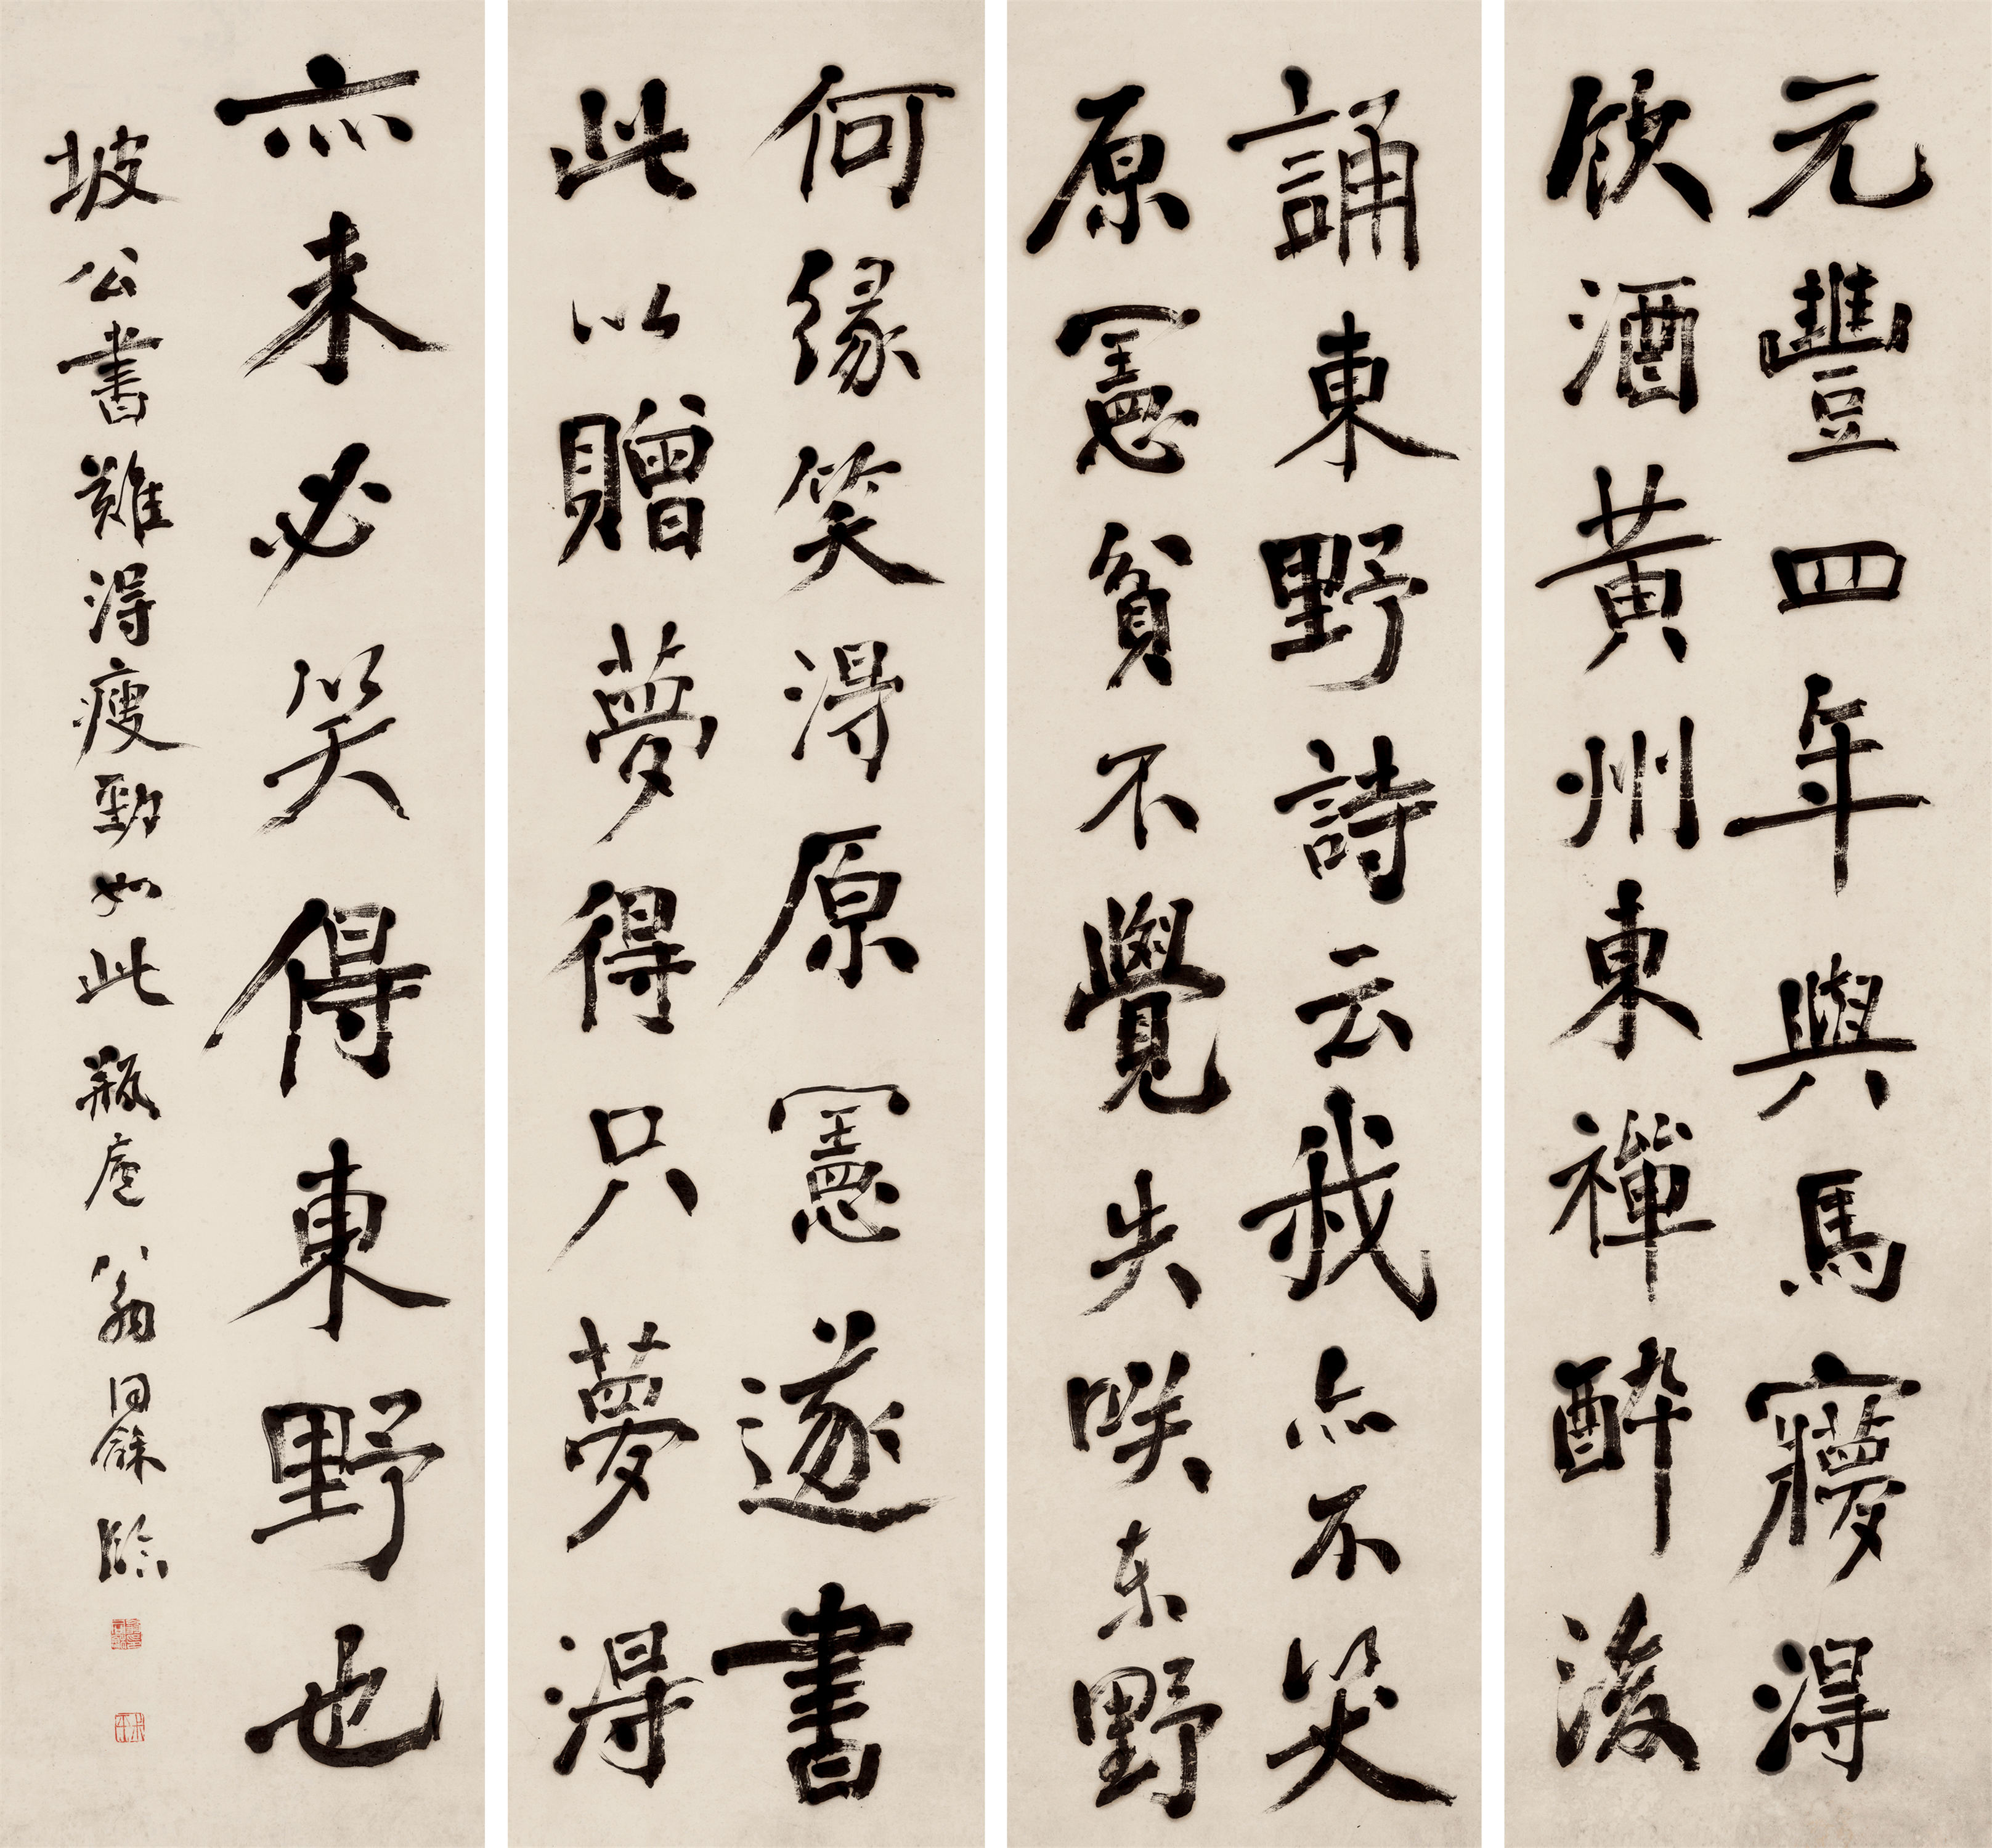 元豐四年與馬寱得
飲酒黃州東禪醉後
誦東野詩云我亦不笑
原憲貧不覺失咲东野
何緣笑得原憲遂書
此以贈夢得只夢得
亦未必笑得東野也
坡公書難得瘦勁如此 瓶廬翁同龢臨